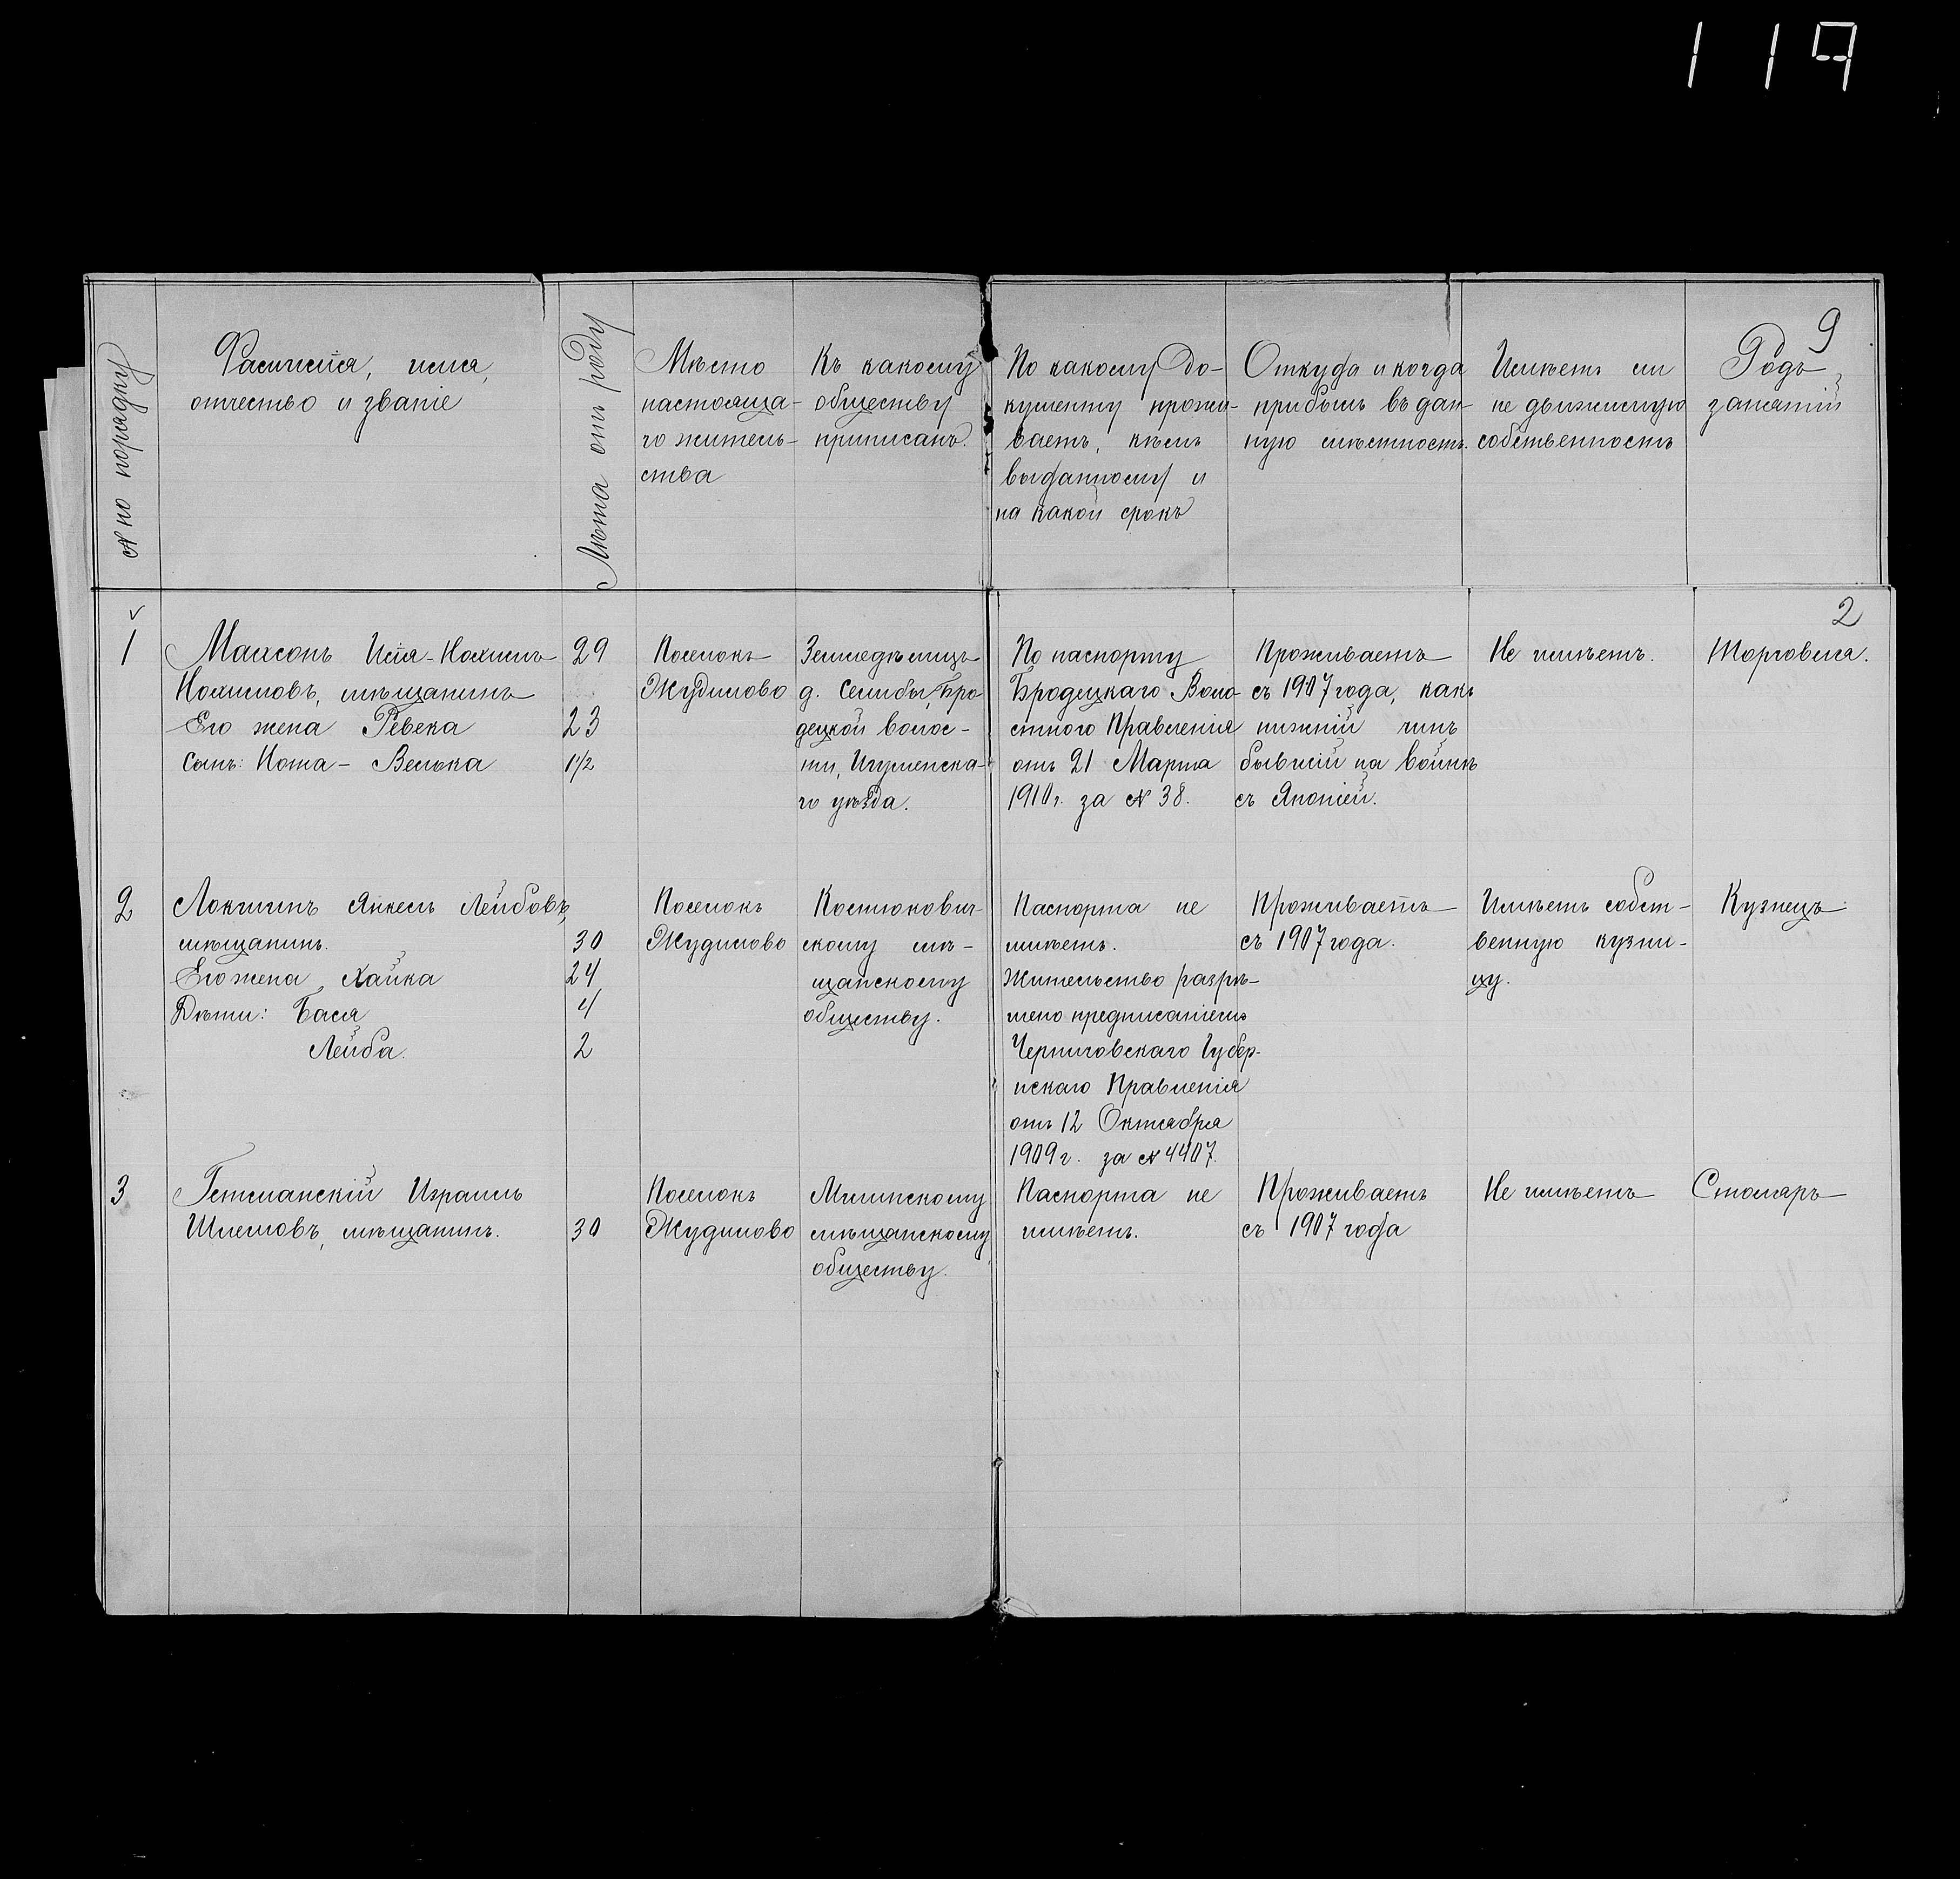 119
9
№ по порядку
Фамилія, имя,
отчество и званіе
Лѣта отъ роду
Мѣсто
настояща-
го житель-
ства
Къ какому
обществу
приписанъ.
По какому до-
кументу прожи-
ваетъ, кѣмъ
выданному и
на какой срокъ
Откуда и когда
прибылъ въ дан-
ную мѣстность.
Имѣетъ ли
не движимую
собственность
Родъ
занятій
2
1
Махсонъ Исія-Нохимъ
Нохимовъ, мѣщанинъ
Его жена Ревека
Сынъ: Нота - Велька
29
23
1 1/2
Поселокъ
Жудилово
Земледѣлецъ
д. Селибы, Бро-
децкой волос-
ти, Игуменска-
го уѣзда.
По паспорту
Бродецкаго Воло-
стного Правленія
отъ 21 Марта
1910г. за № 38.
Проживаетъ
съ 1907 года, какъ
нижній чинъ
бывшій на войнѣ
съ Японіей.
Не имѣетъ.
Торговля.
2
Локшинъ Янкель Лейбовъ,
мѣщанинъ.
Его жена Хайка
Дѣти: Бася
Лейба.
30
24
4
2
Поселокъ
Жудилово
Костюкович-
скому мѣ-
щанскому
обществу.
Паспорта не
имѣетъ.
Жительство разрѣ-
шено предписаніемъ
Черниговскаго Губер-
нскаго Правленія
отъ 12 Октября
1909 г. за № 4407.
Проживаетъ
съ 1907 года.
Имѣетъ собст-
венную кузни-
цу.
Кузнецъ
3
Гетманскій Израиль
Шлемовъ, мѣщанинъ.
30
Поселокъ
Жудилово
Мглинскому
мѣщанскому
обществу.
Паспорта не
имѣетъ.
Проживаетъ
съ 1907 года
Не имѣетъ
Столяръ